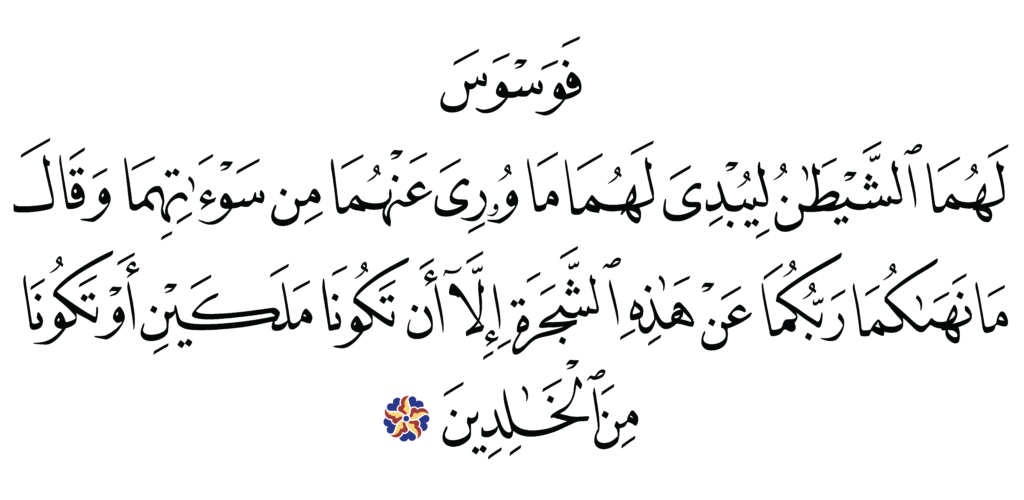 فَوَسْوَسَ
لَهُمَا ٱلشَّيْطَٰنُ لِيُبْدِىَ لَهُمَا مَا وُۥرِىَ عَنْهُمَا مِن سَوْءَٰتِهِمَا وَقَالَ
مَا نَهَىٰكُمَا رَبُّكُمَا عَنْ هَٰذِهِ ٱلشَّجَرَةِ إِلَّآ أَن تَكُونَا مَلَكَيْنِ أَوْ تَكُونَا
مِنَ ٱلْخَٰلِدِينَ